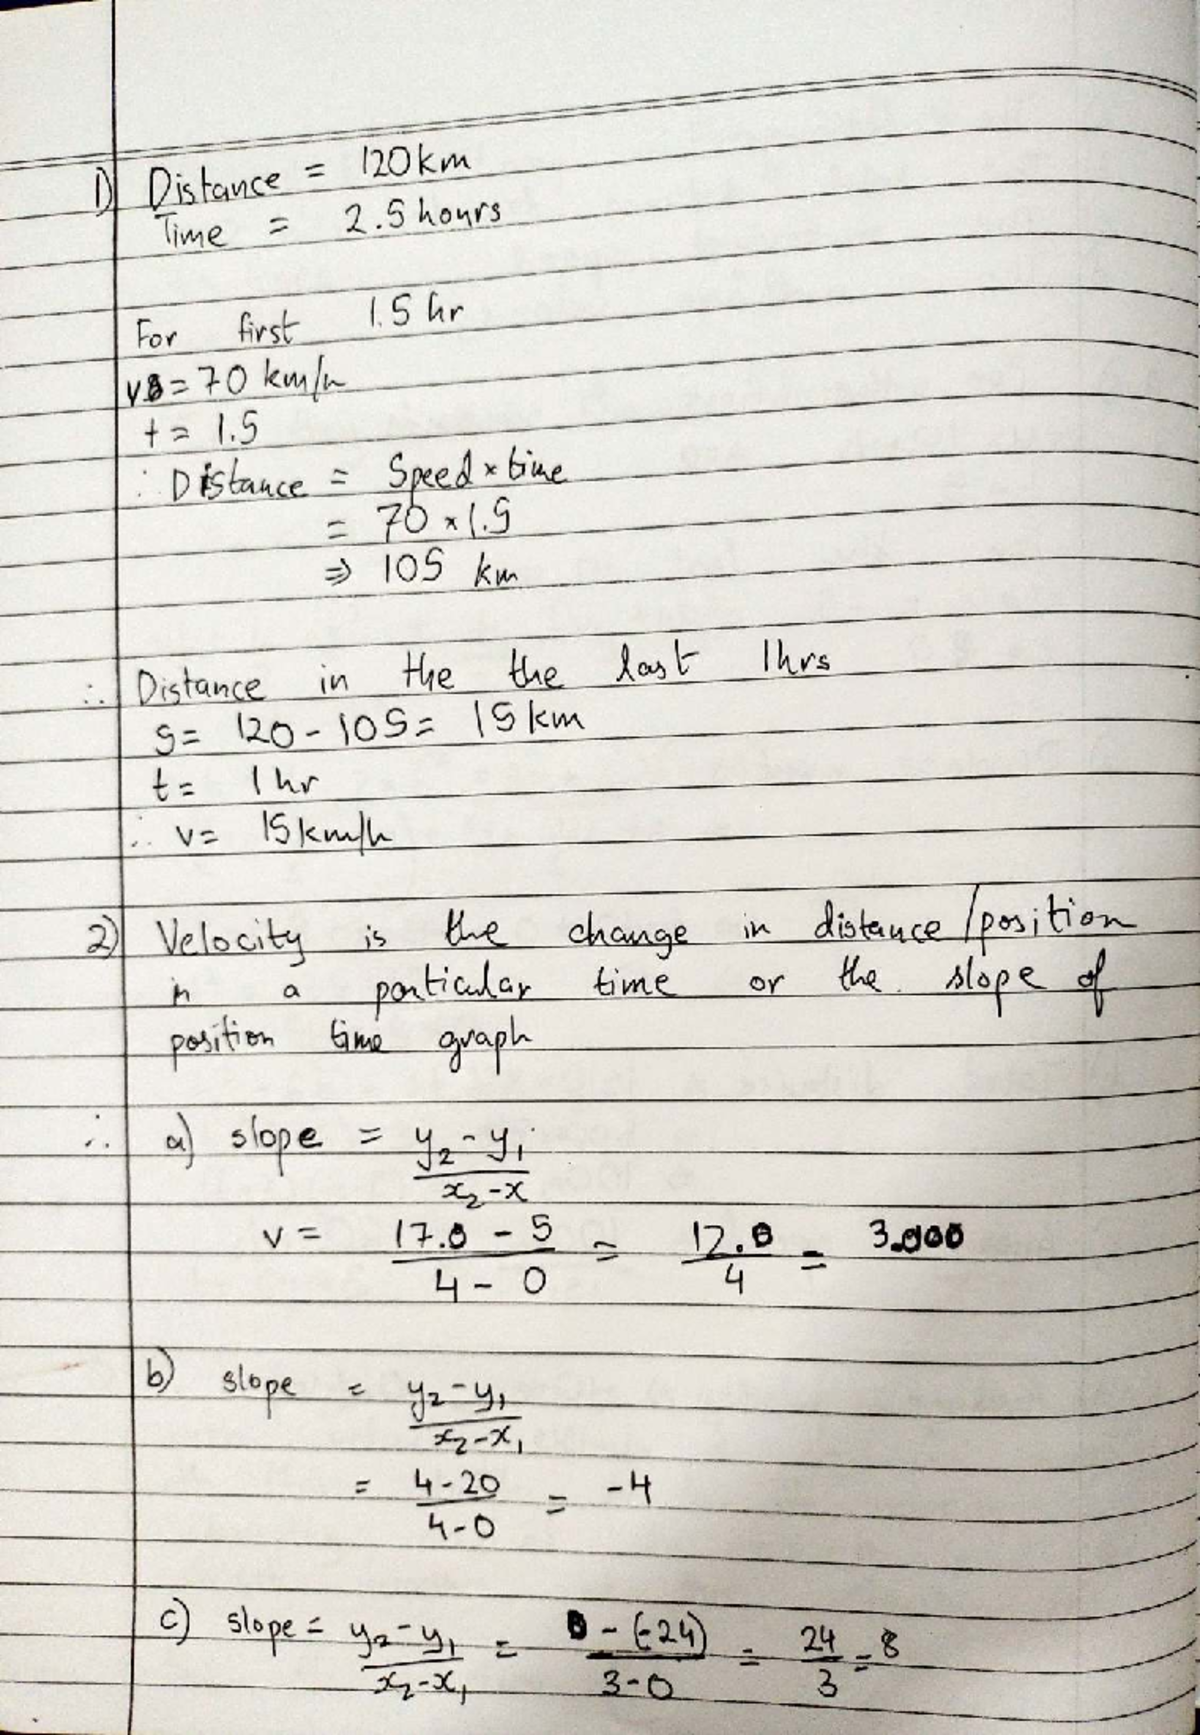 1) Distance = 120 km
Time = 2.5 hours
For first 1.5 hr
v = 70 km/h
t = 1.5
∴ Distance = Speed × time
= 70 × 1.5
⇒ 105 km
∴ Distance in the the last 1hrs
S = 120 - 105 = 15 km
t = 1 hr
∴ v = 15 km/h
2) Velocity is the change in distance /position
in a particular time or the slope of
position time graph
∴ a) slope = y₂ - y₁
x₂ - x
v = 17.0 - 5 = 12.0 = 3.000
4 - 0 4
b) slope = y₂ - y₁
x₂ - x₁
= 4 - 20 = -4
4 - 0
c) slope = y₂ - y₁ = 0 - (-24) = 24 = 8
x₂ - x₁ 3 - 0 3